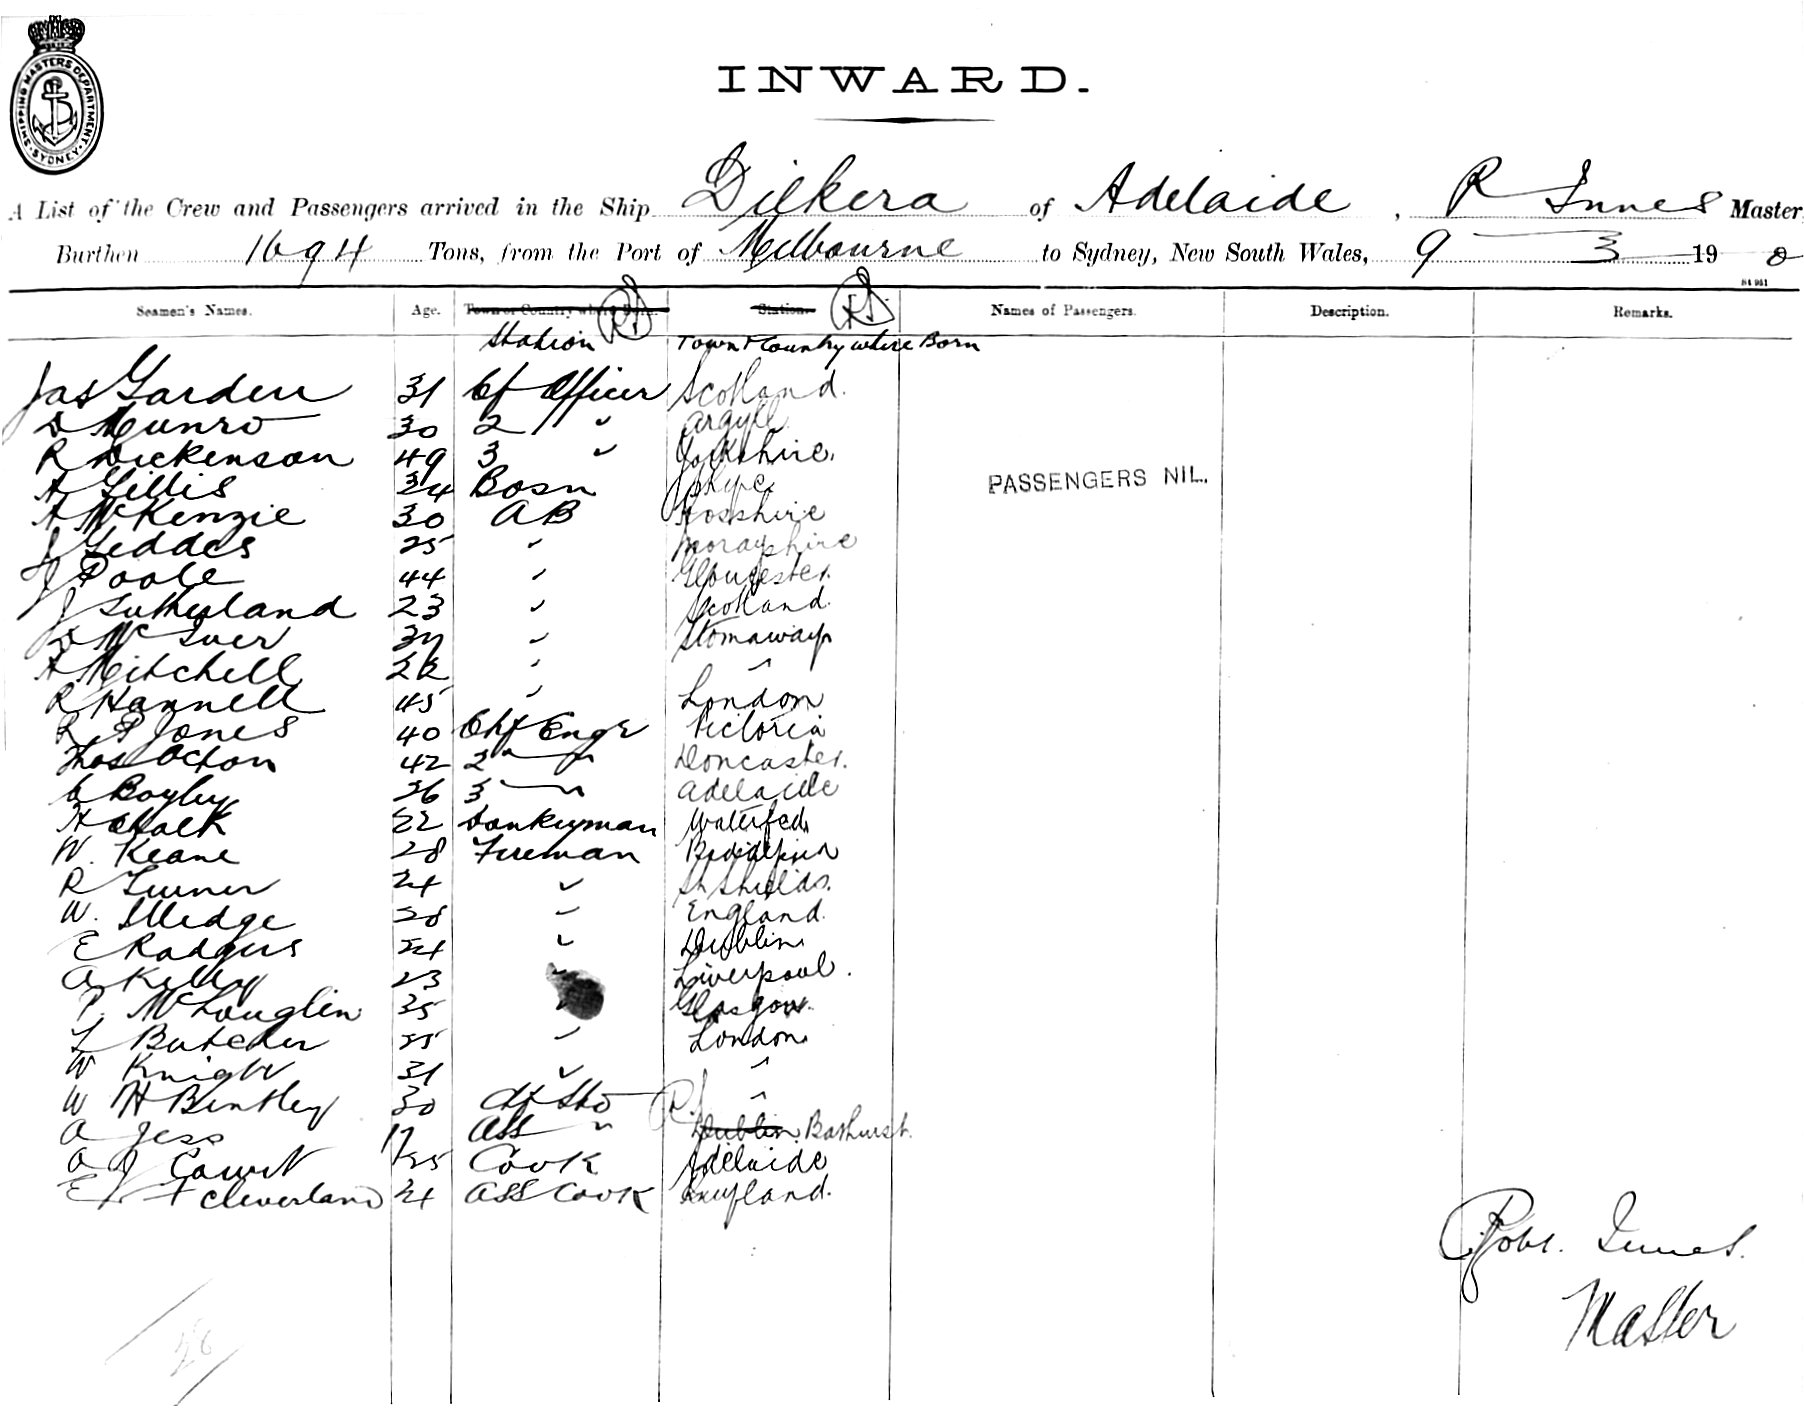 SHIPPING MASTERS DEPARTMENT. SYDNEY.
INWARD.
A List of the Crew and Passengers arrived in the Ship Dilkera of Adelaide, R Innes Master
Burthen 1694 Tons, from the Port of Melbourne to Sydney, New South Wales, 9 3 19 0
Seamen's Names. Age. Town or Country where Born. RI Station. RI Names of Passengers. Description. Remarks.
Station Town & Country where Born
Jas Garden 31 Cf Officer Scotland.
D Munro 30 2 " Argyll
R Dickenson 49 3 " Yorkshire.
A Gillis 34 Bosn Skye
A McKenzie 30 AB Rosshire
J Geddes 25 " Morayshire
J Poole 44 " Gloucester.
J Sutherland 23 " Scotland.
D McIver " Stornaway
A Mitchell 22 " "
R Hannell 45 " London
R P Jones 40 Chf Engr Victoria
Thos Octon 42 2 " Doncaster.
C Bayley 36 3 " Adelaide
H Chalk 22 Donkeyman Waterfod
W. Keane 28 Fireman
R Turner 24 " Sh Shields.
W. Sledge 28 " England.
E Rodgers 24 " Dublin
A Kelly 23 " Liverpool.
P. McLouglin 35 " Glasgow.
L Butcher 25 " London
W Knight 31 " "
W H Bentley 30 Chf Std "
A Jess 17 Ass " R.I Dublin Bathurst.
A J Court 25 Cook Adelaide
E J Cleverland 24 Ass Cook England.
PASSENGERS NIL.
Robt. Innes.
Master
26